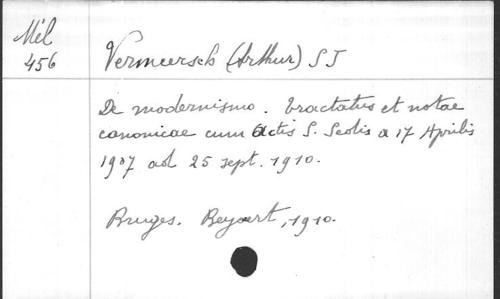 Mél
456
Vermeersch (Arthur) SJ
De modernismo. Tractatus et notae
canonicae cum Actis S. Sedis a 17 Aprilis
1907 ad 25 sept. 1910.
Bruges. Beyaert, 1910.